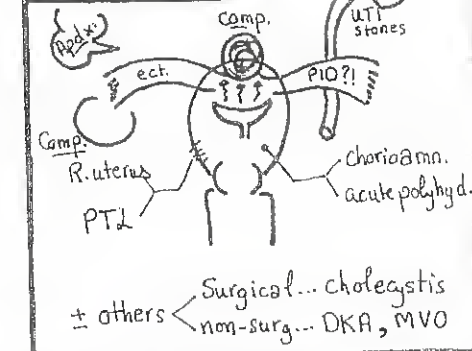 Apdx:
Comp.
UTI
stones
ect.
PID?!
Comp.
R. uterus
PTL
Chorioamn.
acute polyhyd.
± others
Surgical... cholecystis
non-surg... DKA, MVO